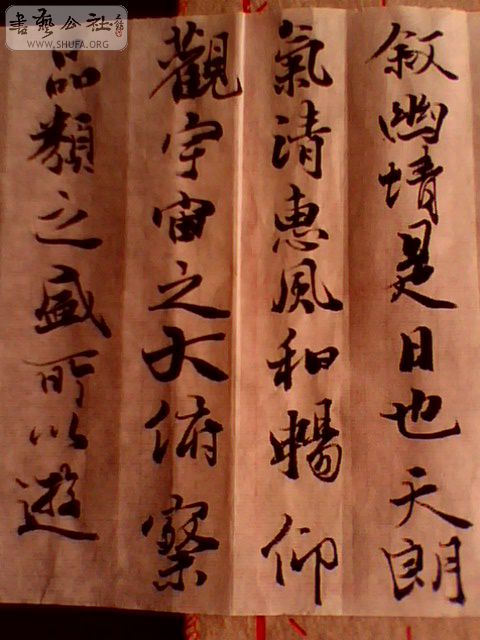 敘幽情是日也天朗
氣清惠風和暢仰
觀宇宙之大俯察
品類之盛所以遊
書藝公社
WWW.SHUFA.ORG